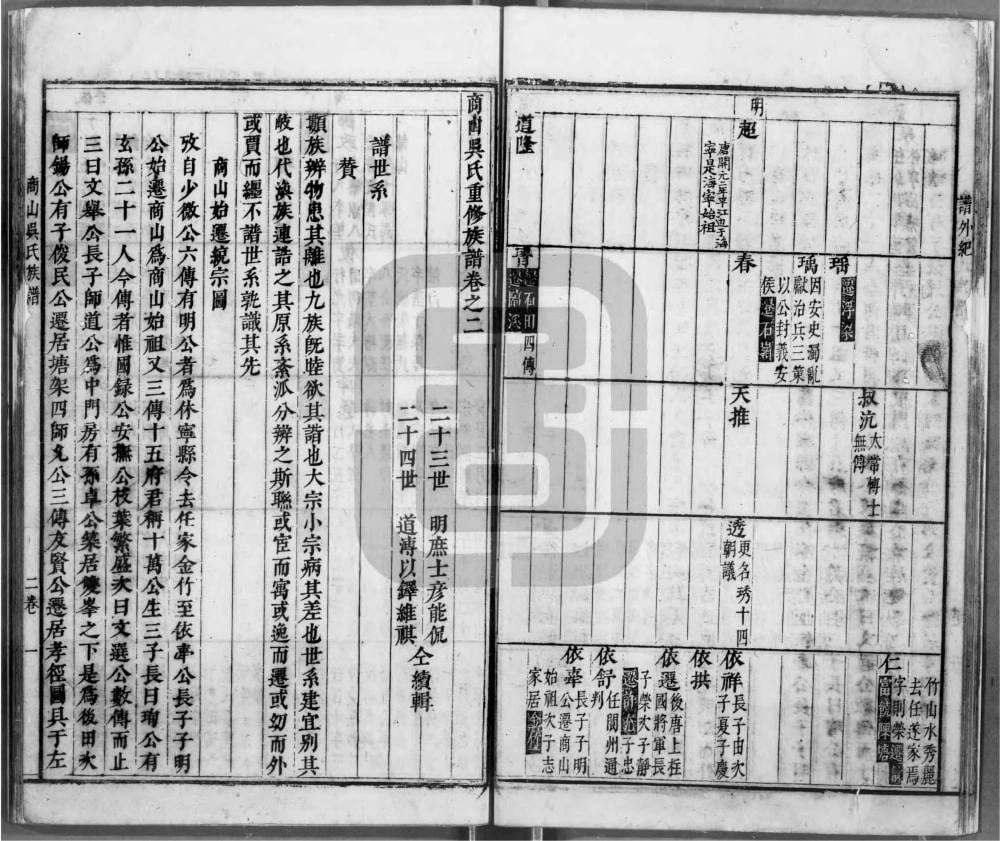 譜外紀
仁
竹山水秀麗
去任遂家焉
字則榮遷
叔沆
太常博士
無傳
瑶
遷浮梁
瑀
因安史濁亂
獻治兵三策
以公封義安
侯遷石嶺
春
天推
透
更名琇十四
朝議
依祥
長子由次
子夏子慶
依拱
依遷
後唐上柱
國將軍長
子榮次子靜
依舒
子忠
任閬州通
判
依亭
長子子明
公遷商山
始祖次子志
家居金竹
明
超
唐開元二年卒江血子海
寧是海寧始祖
道隆
遷石田四傳
商山吳氏重修族譜卷之二
二十三世　明庶士彦能侃
二十四世　道溥以鐸維祺
仝續輯
譜世系
贊
顓族辨物患其離也九族旣睦欲其諧也大宗小宗病其差也世系建宜别其
岐也代渙族連譜之其原系紊泒分辨之斯聯或宦而寓或逸而遷或幼而外
或賈而纏不譜世系孰識其先
商山始遷統宗圖
攷自少微公六傳有明公者爲休寧縣令去任家金竹至依亭公長子子明
公始遷商山爲商山始祖又三傳十五府君稱十萬公生三子長曰珣公有
玄孫二十一人今傳者惟國録公安撫公枝葉繁盛次曰文選公數傳而止
三曰文舉公長子師道公爲中門房有孫卓公築居雙峯之下是爲後田次
師錫公有子俊民公遷居塘架四師允公三傳友賢公遷居孝徑圖具于左
商山吳氏族譜
二卷
一